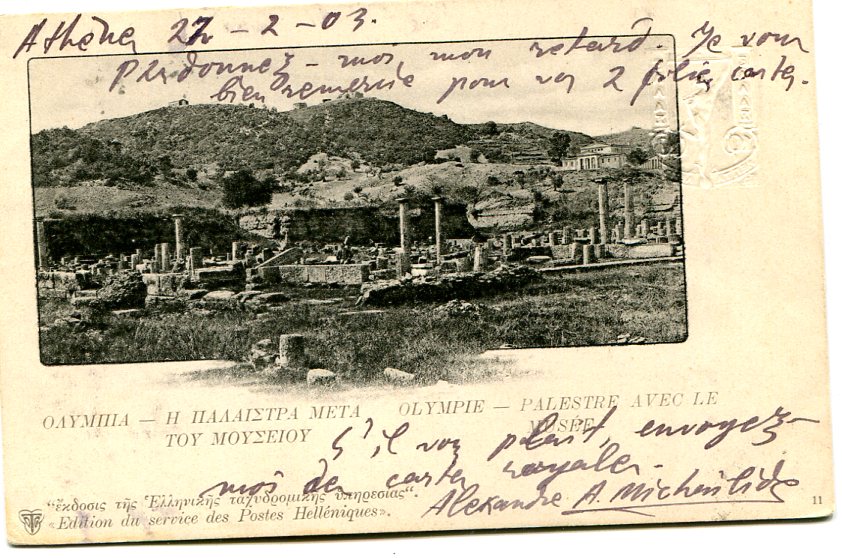 Athène 22 - 2 - 03.
Perdonnez-moi mon retard. Je vous
bien remercie pour vos 2 jolies cartes.
ΟΛΥΜΠΙΑ — Η ΠΑΛΑΙΣΤΡΑ ΜΕΤΑ
ΤΟΥ ΜΟΥΣΕΙΟΥ
OLYMPIE — PALESTRE AVEC LE
MUSÉE
S'il vous plait, envoyez-
moi des cartes royales.
Alexandre A. Michaïlidès
"ἔκδοσις τῆς Ἑλληνικῆς ταχυδρομικῆς ὑπηρεσίας".
«Edition du service des Postes Helléniques».
11